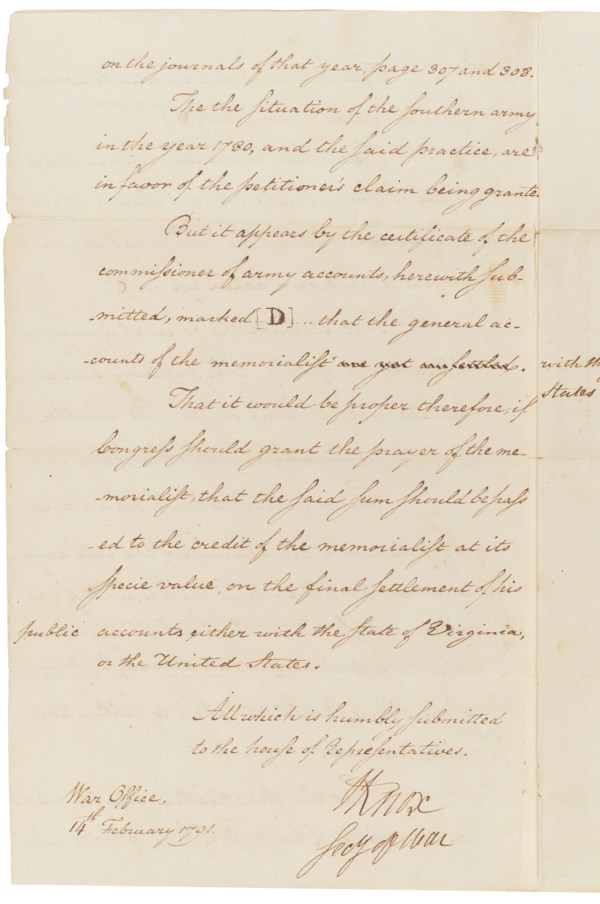 on the journals of that year, page 307 and 308.
The the situation of the southern army
in the year 1780, and the said practice, are
in favor of the petitioner's claim being grante
But it appears by the certificate of the
commissioner of army accounts, herewith sub-
-mitted, marked [D]... that the general ac-
-counts of the memorialist are yet unsettled. with the
states
That it would be proper therefore, if
Congress should grant the prayer of the me-
-morialist, that the said sum should be pass
-ed to the credit of the memorialist at its
specie value, on the final settlement of his
public accounts either with the state of Virginia,
or the United States.
All which is humbly submitted
to the house of Representatives.
War Office,
14th February 1791.
HKnox
Secy of War